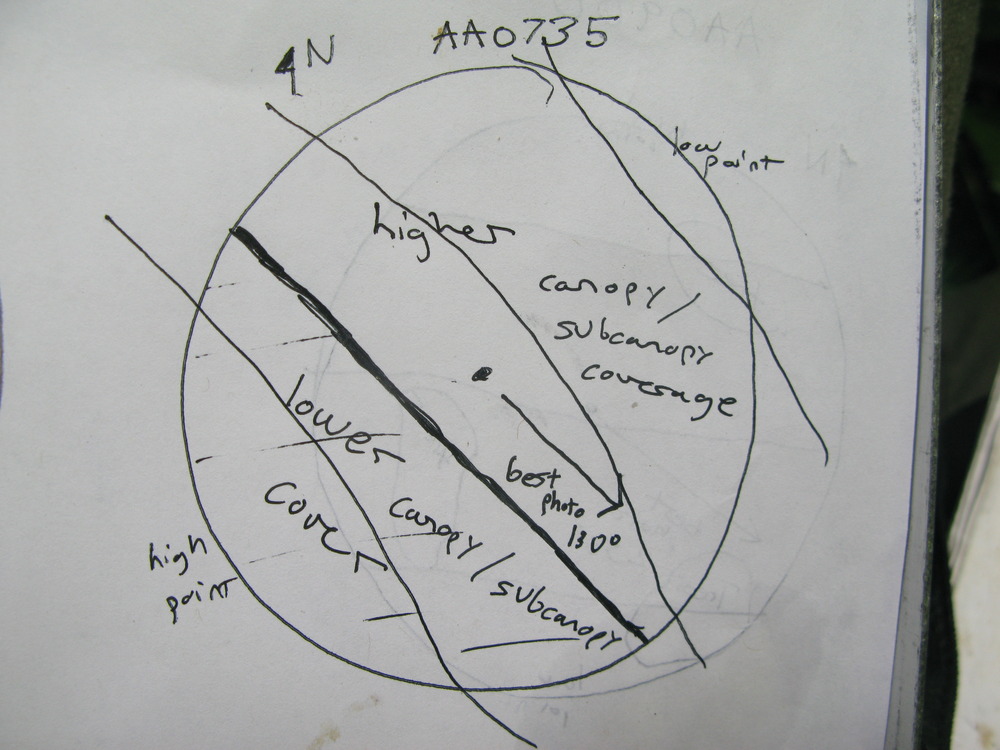 N
AA0735
low
point
higher
canopy/
subcanopy
coverage
best
photo
130°
lower
cover
canopy/
subcanopy
high
point